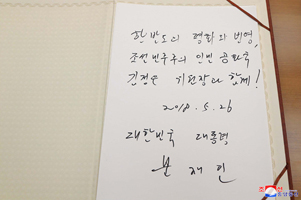 한반도의 평화와 번영,
조선민주주의 인민 공화국
김정은 위원장과 함께!
2018. 5. 26
대한민국 대통령
문 재 인